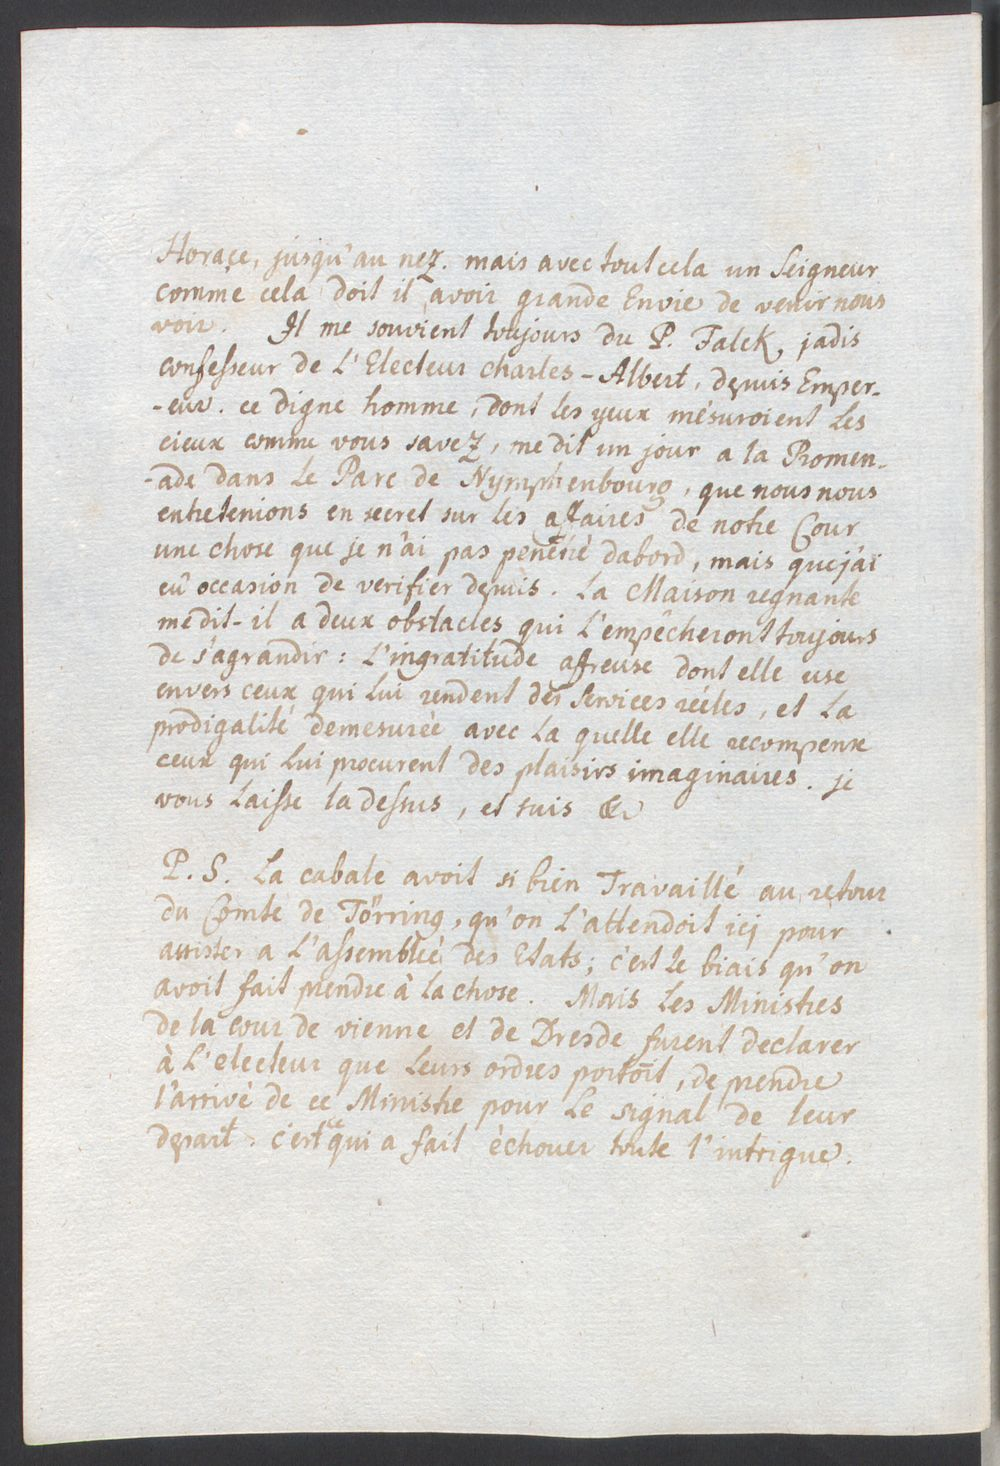 Horaçe, jusqu'au nez. mais avec tout cela un Seigneur
comme cela doit il avoir grande Envie de venir nous
voir. Il me souvient toujours du P. Falck, jadis
confesseur de L'Electeur charles-Albert, depuis Emper-
-eur. ce digne homme, dont les yeux mésuroient Les
cieux comme vous savez, me dit un jour a la Promen-
-ade dans Le Parc de Nymphenbourg, que nous nous
entretenions en secret sur les affaires de notre Cour
une chose que je n'ai pas penétré dabord, mais que j'ai
eû occasion de verifier depuis. La Maison regnante
me dit-il a deux obstacles qui L'empêcheront toujours
de s'agrandir: L'ingratitude affreuse dont elle use
envers ceux qui Lui rendent des Services réeles, et La
prodigalité demesurée avec La quelle elle recompense
ceux qui Lui procurent des plaisirs imaginaires. je
vous Laisse la dessus, et suis &c
P.S. La cabale avoit si bien Travaillé au retour
du Comte de Törring, qu'on L'attendoit icj pour
assister a L'assembleé des Etats; c'est Le biais qu'on
avoit fait prendre à La chose. Mais Les Ministres
de la cour de vienne et de Dresde furent declarer
à L'electeur que Leurs ordres portoit, de prendre
l'arrivè de ce Ministre pour Le signal de leur
depart. c'est ce qui a fait échouer toute l'intrigue.